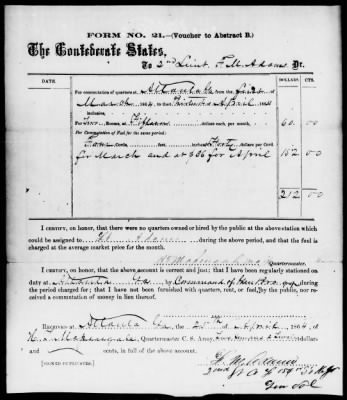 FORM NO. 21.—(Voucher to Abstract B.)
The Confederate States,
To 2nd Lieut. F. M. Adams Dr.
DATE
DOLLARS. CTS.
For commutation of quarters at Atlanta Ga from the first
March 1864, to Thirtieth April 1864
inclusive,
For Two Rooms, at Fifteen dollars each, per month, 60 00
For Commutation of Fuel for the same period:
Cords, feet, inches, Forty dollars per Cord
for March and at $36 for April 152 00
212 00
I CERTIFY, on honor, that there were no quarters owned or hired by the public at the above station which
could be assigned to Lt Adams during the above period, and that the fuel is
charged at the average market price for the month.
Quartermaster.
I CERTIFY, on honor, that the above account is correct and just; that I have been regularly stationed on
duty at Atlanta Ga by Command of Genl Bragg
during the period charged for; that I have not been furnished with quarters, rent, or fuel, by the public, nor
received a commutation of money in lieu thereof.
RECEIVED at Atlanta Ga the 25th of April 1864, of
Quartermaster C. S. Army, dollars
and cents, in full of the above account.
[SIGNED DUPLICATES.]
F. M. Adams